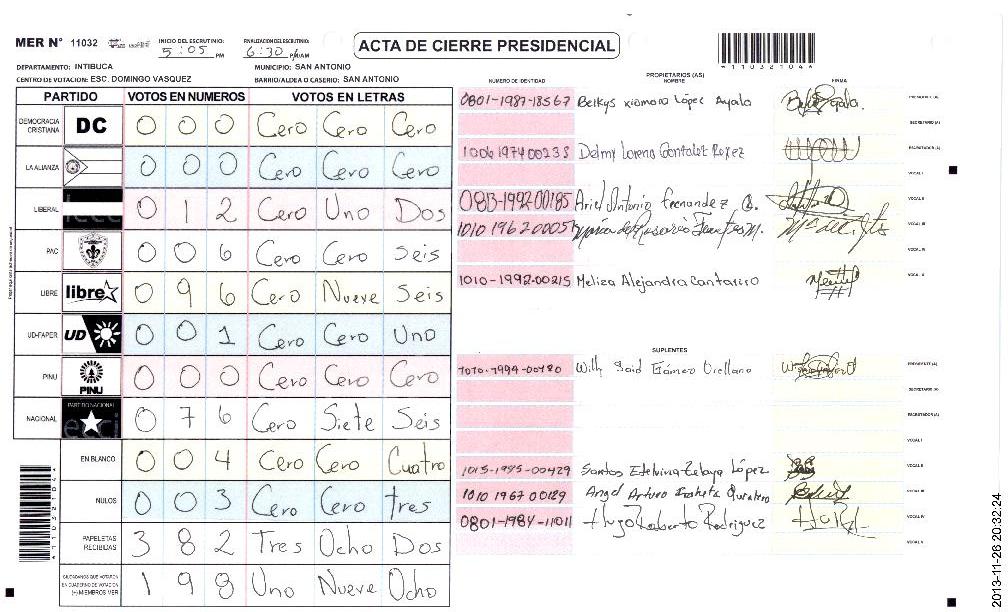 MER Nº 11032 INICIO DEL ESCRUTINIO: 5:05 PM FINALIZACION DEL ESCRUTINIO: 6:30 P/AM
ACTA DE CIERRE PRESIDENCIAL
A11032104A
DEPARTAMENTO: INTIBUCA MUNICIPIO: SAN ANTONIO
CENTRO DE VOTACION: ESC. DOMINGO VASQUEZ BARRIO/ALDEA O CASERIO: SAN ANTONIO
PARTIDO VOTOS EN NUMEROS VOTOS EN LETRAS
DEMOCRACIA CRISTIANA DC 0 0 0 Cero Cero Cero
LA ALIANZA 0 0 0 Cero Cero Cero
LIBERAL 0 1 2 Cero Uno Dos
PAC 0 0 6 Cero Cero Seis
LIBRE libre 0 9 6 Cero Nueve Seis
UD-FAPER UD 0 0 1 Cero Cero Uno
PINU PINU 0 0 0 Cero Cero Cero
NACIONAL PARTIDO NACIONAL 0 7 6 Cero Siete Seis
EN BLANCO 0 0 4 Cero Cero Cuatro
NULOS 0 0 3 Cero Cero tres
PAPELETAS RECIBIDAS 3 8 2 Tres Ocho Dos
CIUDADANOS QUE VOTARON EN CUADERNO DE VOTACION (+) MIEMBROS MER 1 9 8 Uno Nueve Ocho
A11032104A
PROPIETARIOS (AS)
NUMERO DE IDENTIDAD NOMBRE FIRMA
0801-1987-18567 Belkys Xiomara López Ayala PRESIDENTE (A)
SECRETARIO (A)
1006 1974 00235 Delmy Lorena Gonzalez ESCRUTADOR (A)
VOCAL I
0813-1992 00185 Ariel Antonio Fernandez VOCAL II
1010 1962 00057 VOCAL III
VOCAL IV
1010-1992-00215 Meliza Alejandra Cantarero VOCAL V
SUPLENTES
1010-1994-00480 Willy Said Gámez Orellana PRESIDENTE (A)
SECRETARIO (A)
ESCRUTADOR (A)
VOCAL I
1015-1985-00429 Santos Etelvina Zelaya López VOCAL II
1010 1967 00129 Angel Arturo VOCAL III
0801-1984-11011 Hugo Roberto Rodriguez VOCAL IV
VOCAL V
2013-11-26 20:32:24